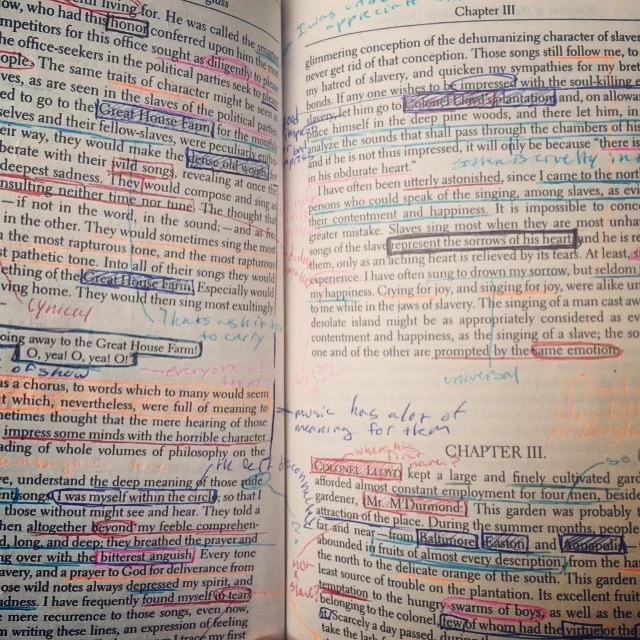 glass
now, who had this honor conferred upon him the
competitors for this office sought as diligently to please
the office-seekers in the political parties seek to
people. The same traits of character might be seen
slaves, as are seen in the slaves of the political parties
ed to go to the Great House Farm, for the month
selves and their fellow-slaves, were peculiarly
their way, they would make the dense old woods,
berate with their wild songs, revealing at once the
deepest sadness. They would compose and sing as
nsulting neither time nor tune. The thought that
—if not in the word, in the sound;—and as
in the other. They would sometimes sing the most
n the most rapturous tone, and the most rapturous
st pathetic tone. Into all of their songs they would
ething of the Great House Farm. Especially would
ving home. They would then sing most exultingly
cynical
oing away to the Great House Farm!
O, yea! O, yea! O!"
as a chorus, to words which to many would seem
t which, nevertheless, were full of meaning to
metimes thought that the mere hearing of those
impress some minds with the horrible character
ading of whole volumes of philosophy on the
ve, understand the deep meaning of those rude
ent songs. I was myself within the circle; so that I
those without might see and hear. They told a
hen altogether beyond my feeble comprehen-
d, long, and deep; they breathed the prayer and
ng over with the bitterest anguish. Every tone
avery, and a prayer to God for deliverance from
ose wild notes always depressed my spirit, and
adness. I have frequently found myself in tears
e mere recurrence to those songs, even now,
n writing these lines, an expression of feeling
Chapter III
glimmering conception of the dehumanizing character of slavery
never get rid of that conception. Those songs still follow me, to
my hatred of slavery, and quicken my sympathies for my bret
bonds. If any one wishes to be impressed with the soul-killing
slavery, let him go to Colonel Lloyd's plantation, and, on allowan
place himself in the deep pine woods, and there let him,
analyze the sounds that shall pass through the chambers of his
and if he is not thus impressed, it will only be because "there is
in his obdurate heart."
I have often been utterly astonished, since I came to the north
persons who could speak of the singing, among slaves, as evi
their contentment and happiness. It is impossible to conce
greater mistake. Slaves sing most when they are most unhap
songs of the slave represent the sorrows of his heart; and he is re
them, only as an aching heart is relieved by its tears. At least, s
experience. I have often sung to drown my sorrow, but seldom
my happiness. Crying for joy, and singing for joy, were alike un
to me while in the jaws of slavery. The singing of a man cast aw
desolate island might be as appropriately considered as evi
contentment and happiness, as the singing of a slave; the so
one and of the other are prompted by the same emotion.
universal
music has a lot of
meaning for them
CHAPTER III.
COLONEL LLOYD kept a large and finely cultivated gard
afforded almost constant employment for four men, beside
gardener, (Mr. M'Durmond.) This garden was probably t
attraction of the place. During the summer months, people
far and near—from Baltimore, Easton, and Annapolis
abounded in fruits of almost every description, from the har
the north to the delicate orange of the south. This garden
least source of trouble on the plantation. Its excellent fruit
temptation to the hungry swarms of boys, as well as the
belonging to the colonel, few of whom had the virtue or the
it. Scarcely a day passed, during
take the lash